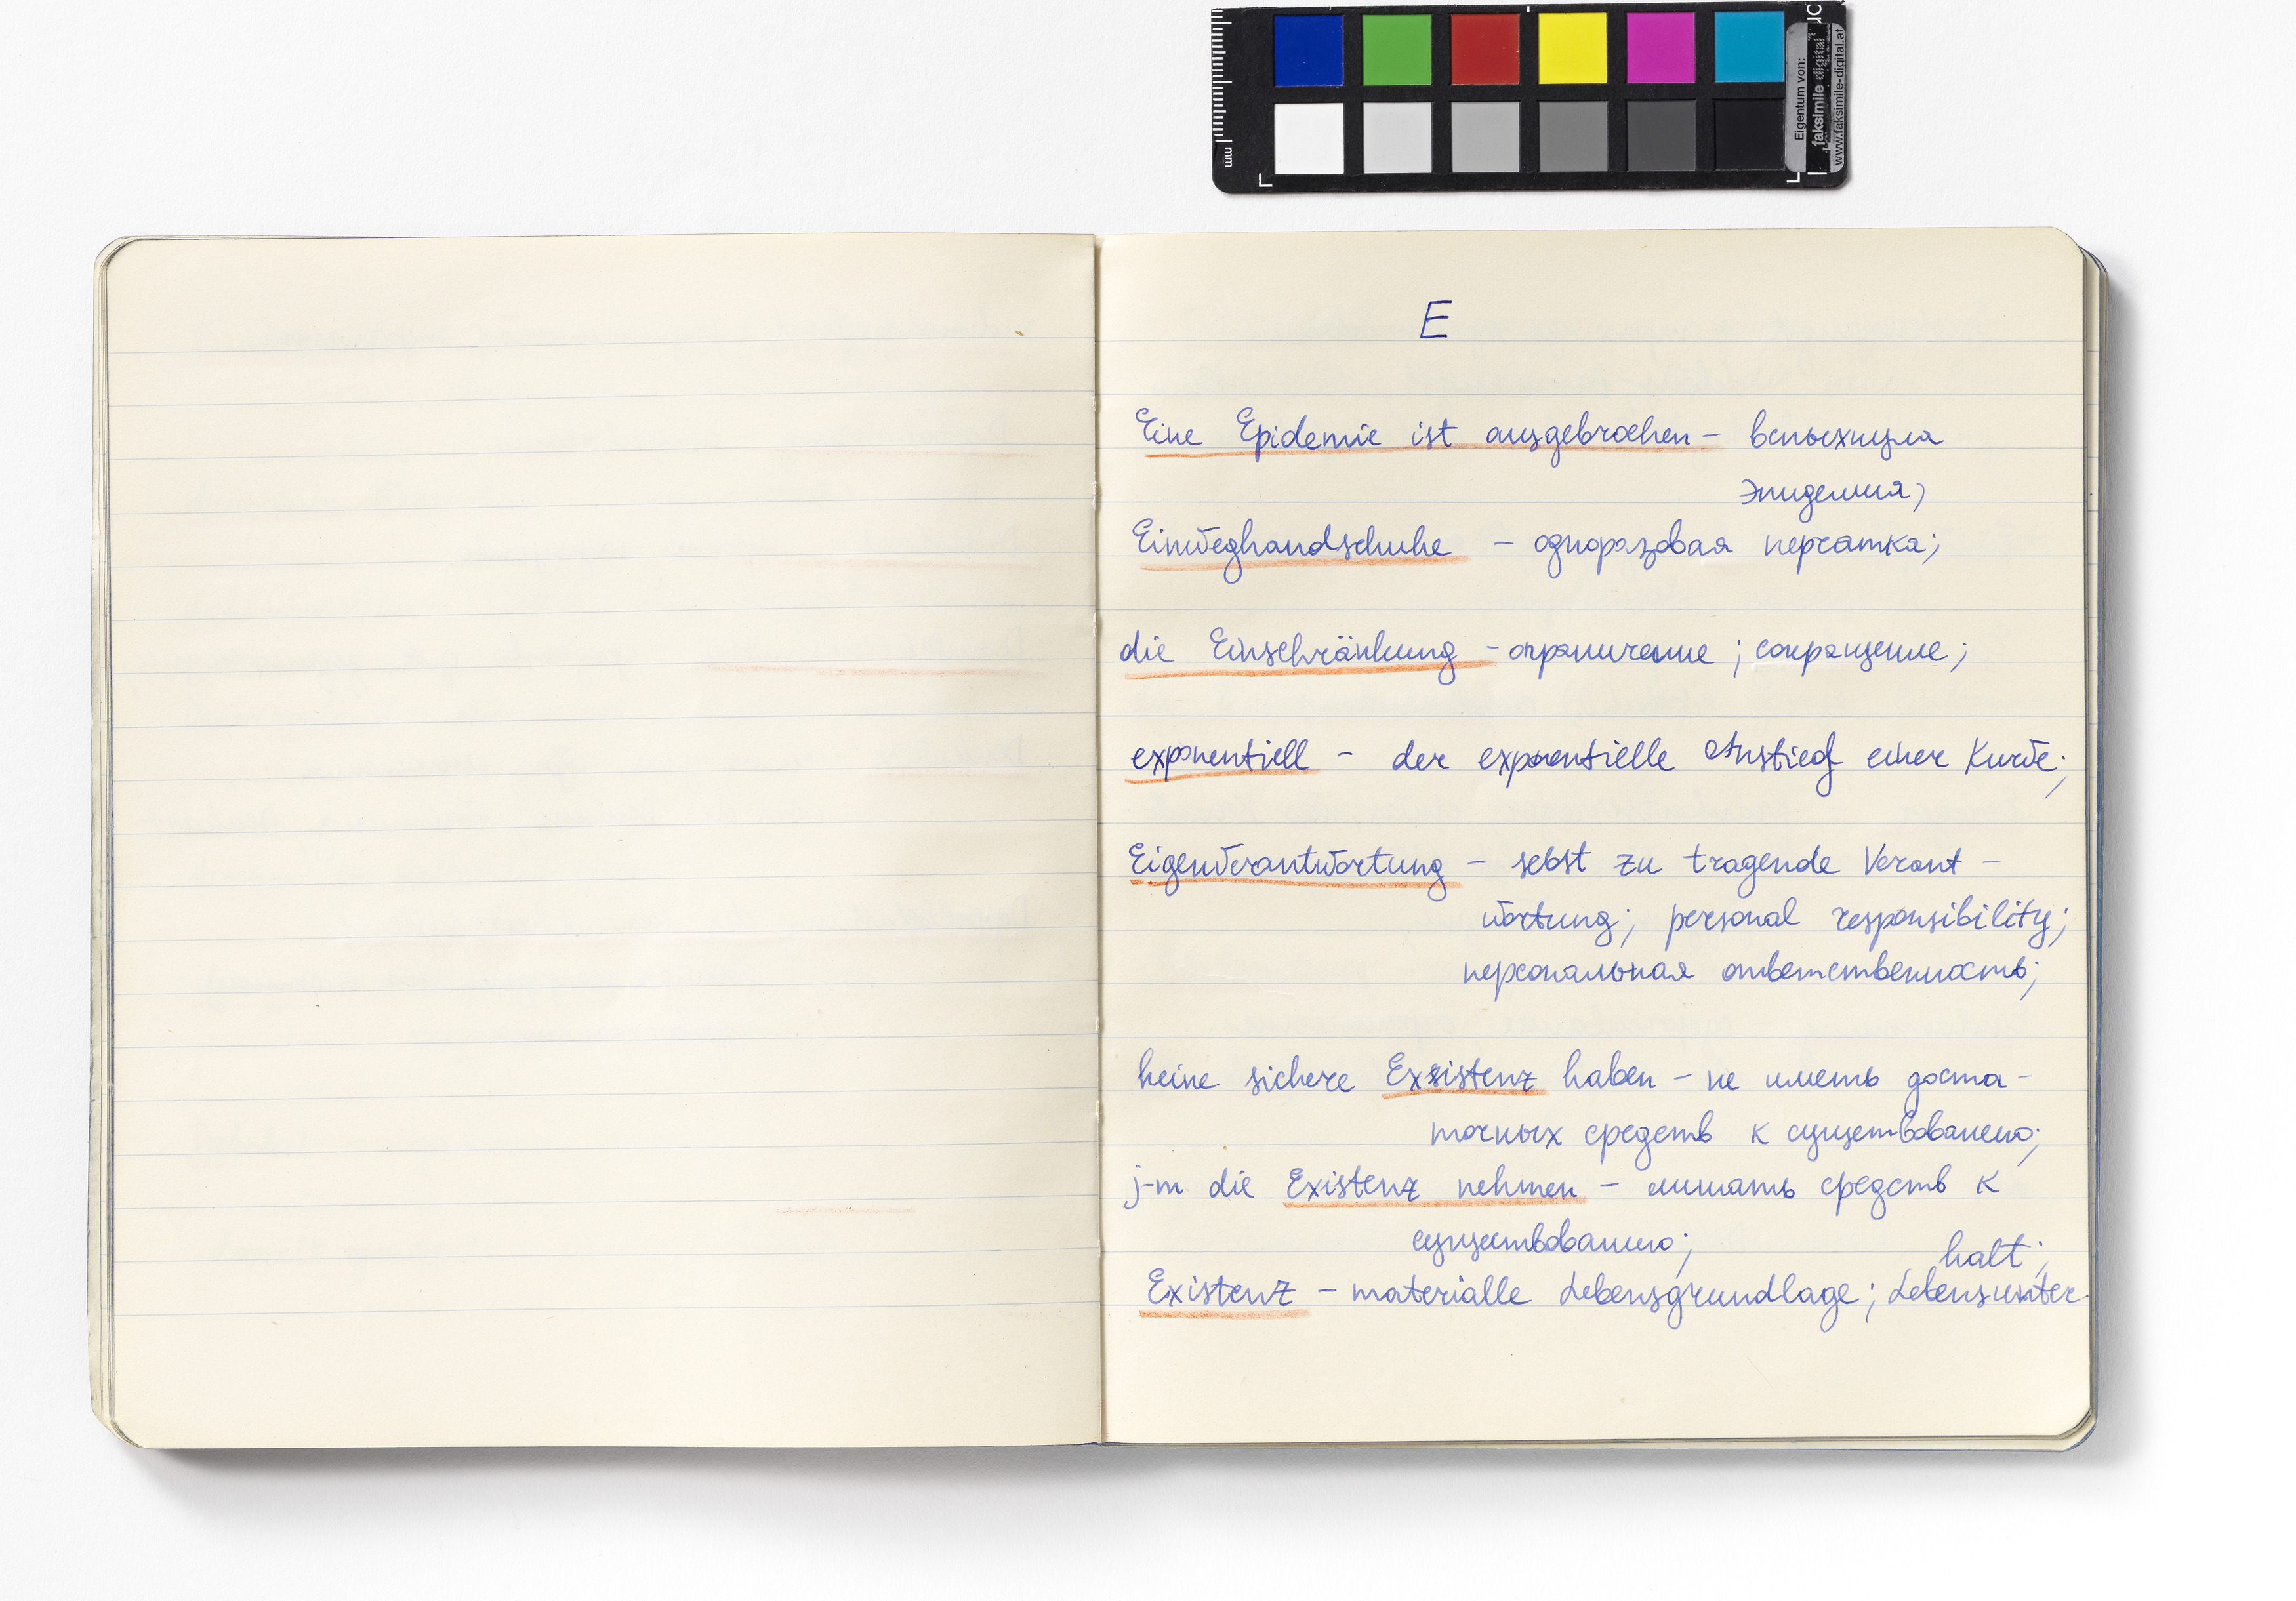 mm
Eigentum von:
faksimile digital
www.faksimile-digital.at
E
Eine Epidemie ist ausgebrochen – вспыхнула
эпидемия;
Einweghandschuhe – одноразовая перчатка;
die Einschränkung – ограничение; сокращение;
exponentiell – der exponentielle Anstieg einer Kurve;
Eigenverantwortung – sebst zu tragende Verant–
wortung; personal responsibility;
персональная ответственность;
keine sichere Exsistenz haben – не иметь доста–
точных средств к существованию;
j-m die Existenz nehmen – лишать средств к
существованию;
halt;
Existenz – materialle Lebensgrundlage; Lebensunter